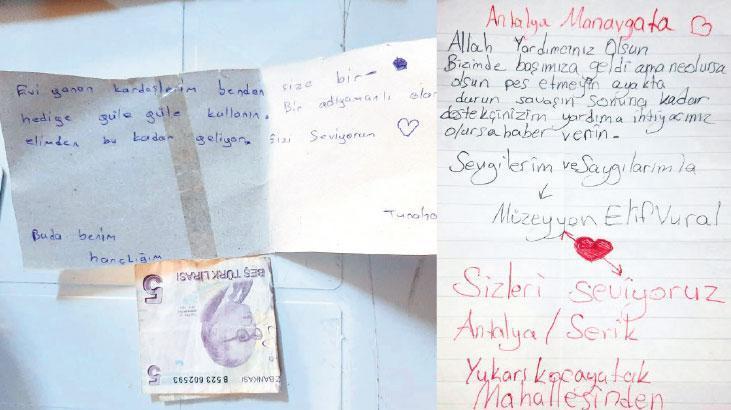 Evi yanan kardeşlerim benden size bir
hediye güle güle kullanın. Bir adıyamanlı olar
elimden bu kadar geliyor. Sizi Seviyorum
Tunaha
Buda benim
harçlığım
5
BEŞ TÜRK LİRASI
5
B 523 602593
ZBANKASI
Antalya Manavgata
Allah Yardımcınız Olsun
Bizimde başımıza geldi ama neolursa
olsun pes etmeyin ayakta
durun savaşın sonuna kadar
destekçinizim yardıma ihtiyacınız
olursa haber verin.
Sevgilerim ve Saygılarımla
Müzeyyen Elif Vural
Sizleri seviyoruz
Antalya / Serik
Yukarı kocayatak
Mahallesinden